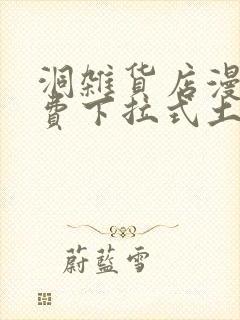 洞雜貨店漫
費下拉式土
蔚藍雪